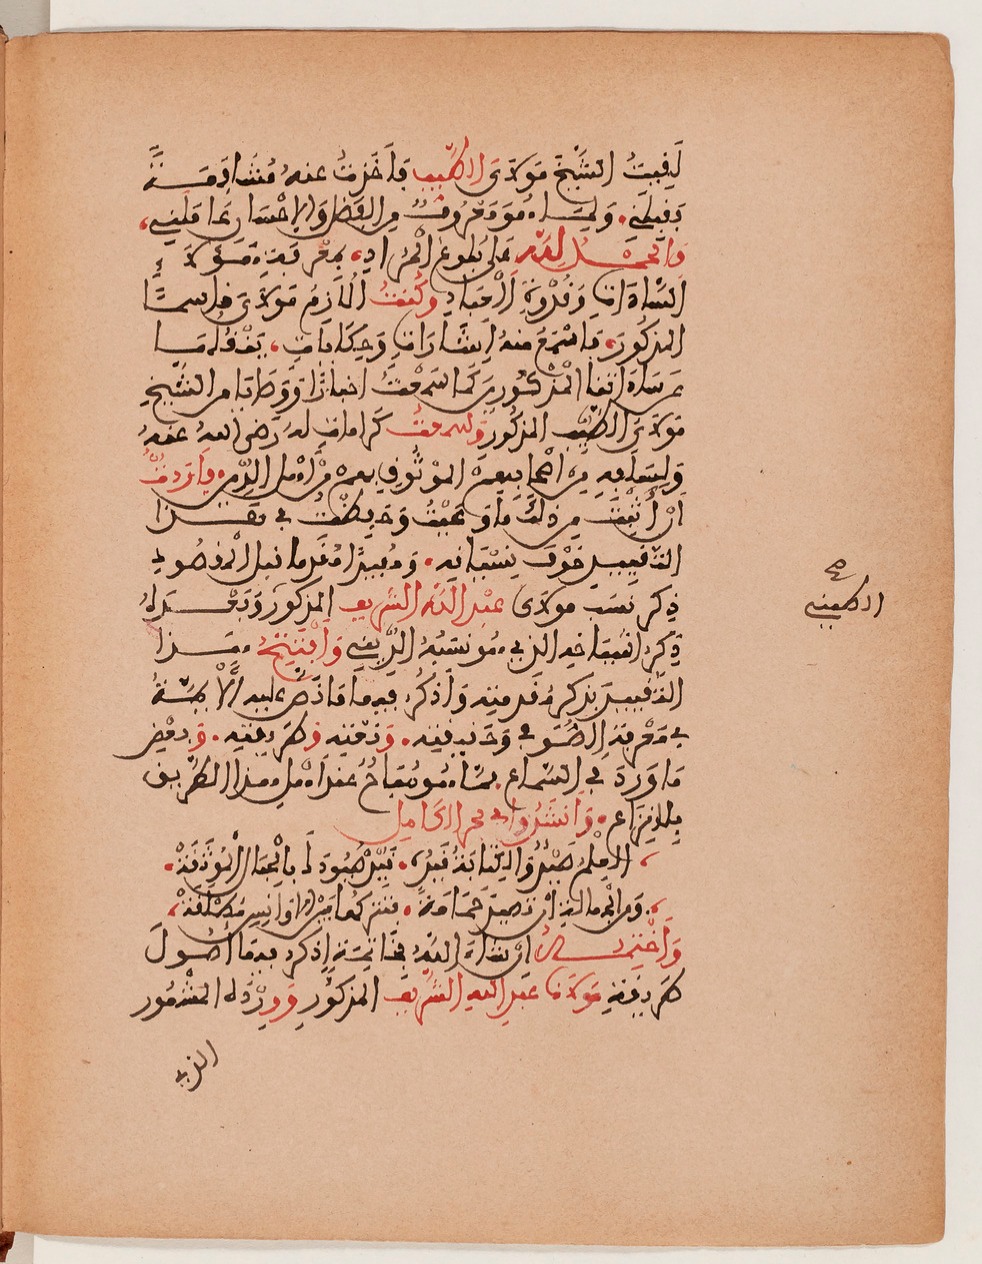 لَفِيتُ الشَّيْخَ مَوْلَايَ الطَّيِّب فَأَخَذْتُ عنه مُشَافَهَـةً
فَقَبِلَنِي. وَلِمَا هُوَ مَعْرُوفٌ مِن الفَضْلِ وَالإِحْسَانِ عَامَلَنِي،
وَالحَمْـدُ لِلَّه عَلى بُلُوغِ الْمُرَادِ، بِمَعْرِفَةِ هَـؤُلَاءِ
السَّادَاتِ وَقُدْوَةِ الْعِبَادِ وَكُنتُ أُلَازِمُ مَوْلَايَ فاسمًا
المذكُورَ، فأسْمَعُ منهُ إشَارَاتٍ وَحِكَايَاتٍ، يَنْقُلُهـا
عن سَادَاتِنَا الْمَذْكُورِينَ كَمَا سَمِعْتُ أخبارًا وَوَصَايَا مِن الشَّيْخِ
مَوْلَايَ الطَّيِّب المذكُورِ وَسمعتُ كَرَامَاتٍ لهُ رَضِيَ اللهُ عنهُ
وَلِسَلَفِهِ مِنْ أصْحَابِهِمْ الْمَوْثُوقِ بِهِمْ مِنْ أهْلِ الدِّينِ، فَأَرَدتُ
أَنْ أُثْبِتَ مِن ذَلِكَ مَا وَعَيْتُ وَحَفِظْتُ فِي هَـذَا
التَّقْيِيدِ خَوْفَ نِسْيَانِهِ. وَمُبَيِّنًا مُقَدِّمًا قَبْلَ الْمَقْصُودِ
ذِكْرَ نَسَبِ مولَايَ عَبْدِ اللَّه الشَّرِيف المذكُورِ وَبَعْـدَهُ
ذِكْرَ أشْيَاخِهِ الذِي هُوَ نَسَبُهُ الدِّينِي وَأَفْتَتِحُ هَـذَا
التَّقْيِيدَ بِذِكْرِ مُقَدِّمَتِهِ وَأَذْكُرُ فِيهِ مَا نَصَّ عليه الْأَئِمَّةُ
فِي مَعْرِفَةِ التَّصَوُّفِ وَحَقِيقَتِهِ. وَنَعْتِهِ وَطَرِيقَتِهِ. وَبَعْضِ
مَا وَرَدَ فِي السَّمَاعِ مِمَّا هُوَ مُبَاحٌ عِندَ أهْلِ هذا الطَّرِيقِ
بِلَا نِزَاعٍ. وَأَنشَدُوا فِي بحر الكَامِلِ
العِلْمُ صَيْدٌ وَالكِتَابَةُ قَيْدُهُ. قَيِّدْ صُيُودَكَ بِالْحِبَالِ الْمُوثَقَهْ.
وَمِنَ الْجَهَالَةِ أنْ تَصِيدَ حَمَامَةً. فَتَتْرُكُهَا بَيْنَ الأَوَانِسِ مُطْلَقَهْ
وَأَخْتِمُـهُ إنْ شَاءَ اللَّهُ بِخَاتِمَةٍ أذكُرُ فِيهَا أُصُولَ
طَرِيقَةِ مَوْلَانَا عَبْدِ اللهِ الشَّرِيف المذكُورِ وَوِرْدَهُ المشْهُور
الذي